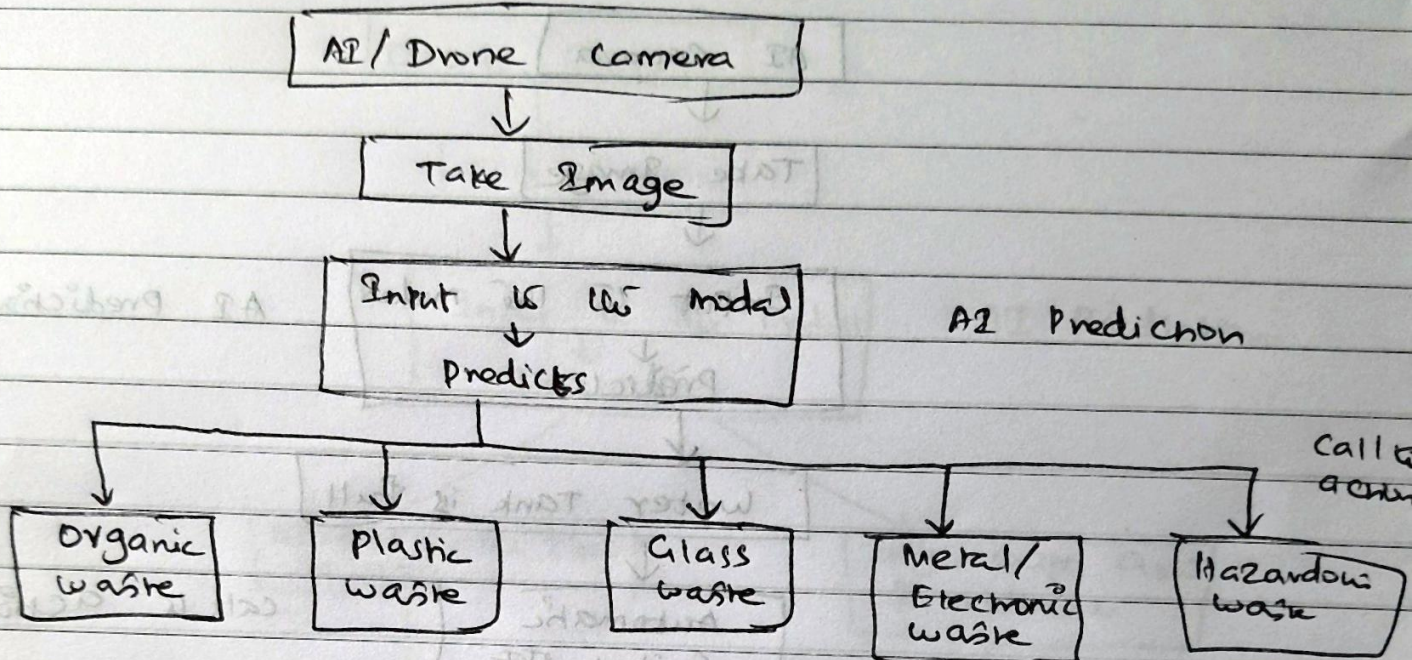 AI/Drone Camera
Take Image
Input to the modal
Predicts
AI Prediction
Call to
action
Organic
waste
Plastic
waste
Glass
waste
Metal/
Electronic
waste
Hazardous
waste